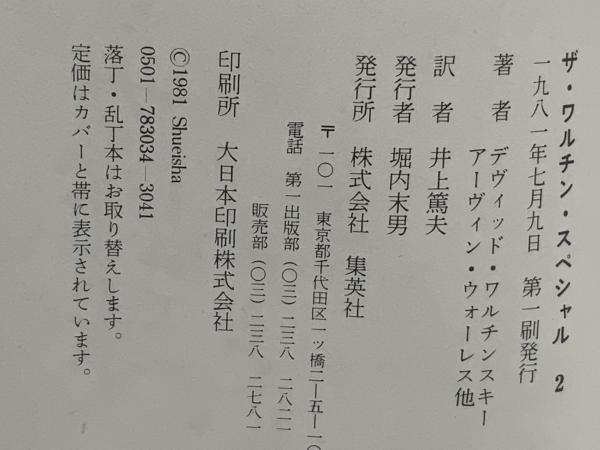 ザ・ワルチン・スペシャル 2
一九八一年七月九日 第一刷発行
著者 デヴィッド・ワルチンスキー
アーヴィン・ウォーレス他
訳者 井上篤夫
発行者 堀内末男
発行所 株式会社 集英社
〒一〇一 東京都千代田区一ッ橋二―五―一〇
電話 第一出版部(〇三)二三八 二八二一
販売部(〇三)二三八 二七八一
印刷所 大日本印刷株式会社
©1981 Shueisha
0501―783034―3041
落丁・乱丁本はお取り替えします。
定価はカバーと帯に表示されています。